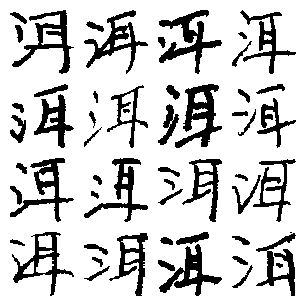 洱洱洱洱
洱洱洱洱
洱洱洱洱
洱洱洱洱